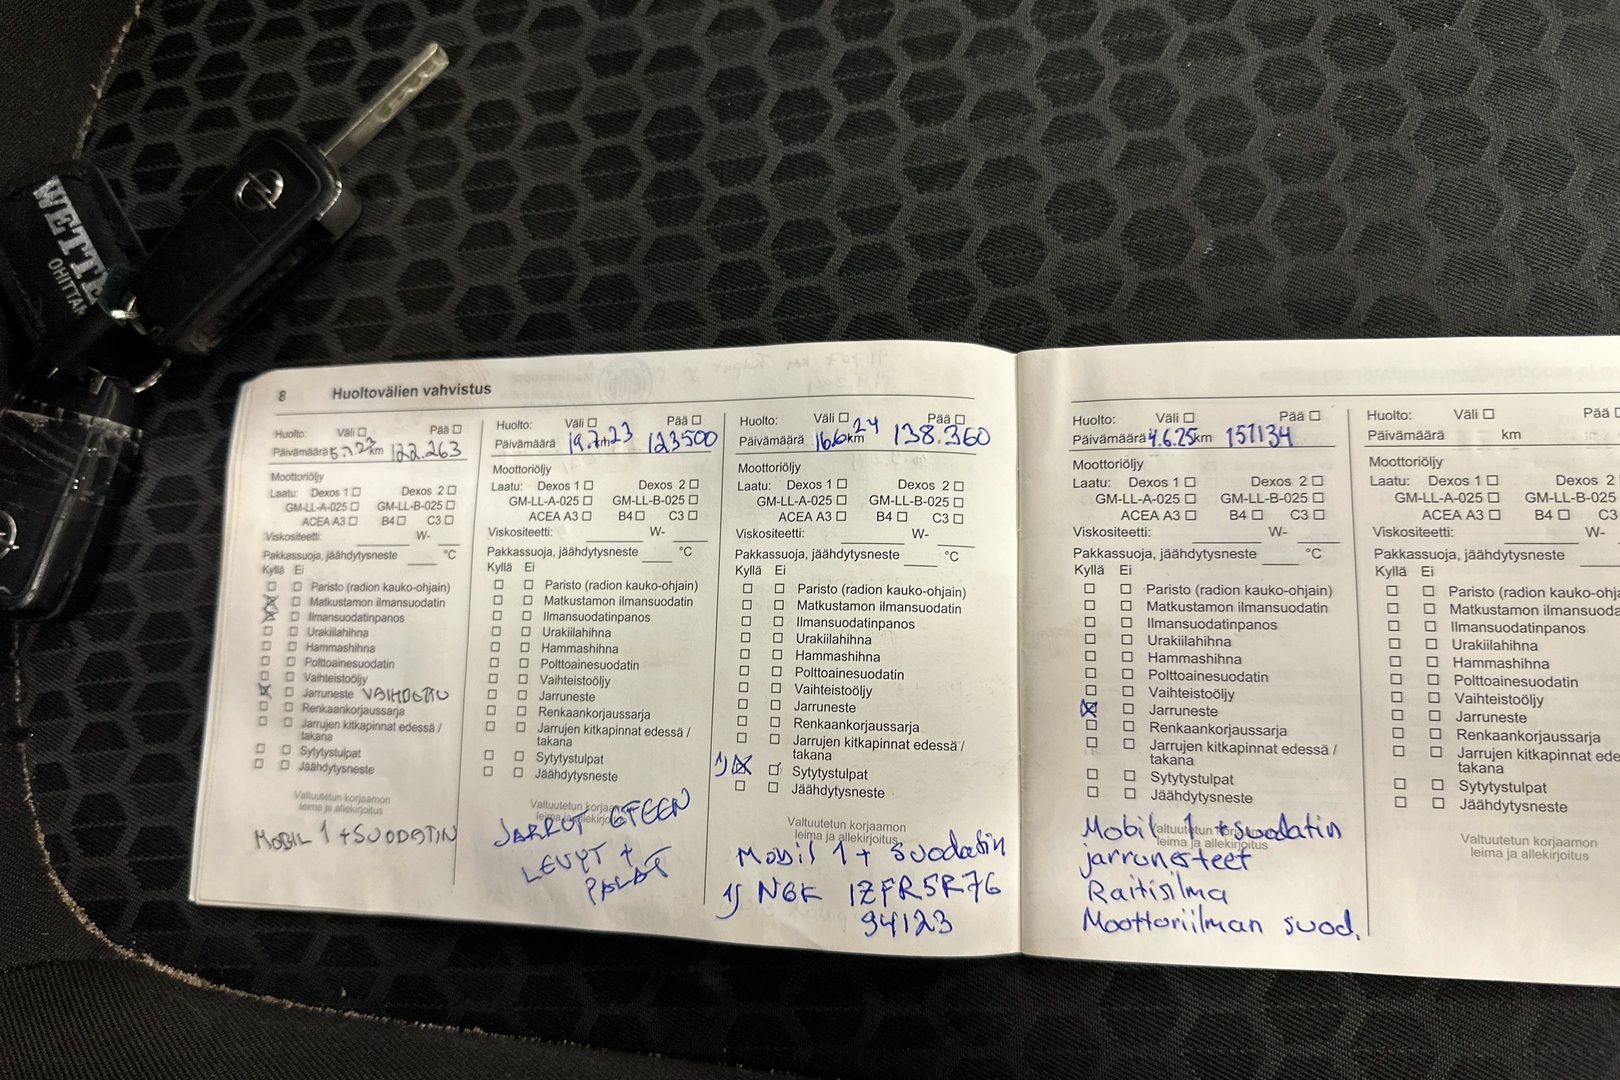 WETTE
OHITTA
8 Huoltovälien vahvistus
Huolto: Väli ☐ Pää ☐
Päivämäärä 5.7.23 km 122.263
Moottoriöljy
Laatu: Dexos 1 ☐ Dexos 2 ☐
GM-LL-A-025 ☐ GM-LL-B-025 ☐
ACEA A3 ☐ B4 ☐ C3 ☐
Viskositeetti: W-
Pakkassuoja, jäähdytysneste °C
Kyllä Ei
☐ ☐ Paristo (radion kauko-ohjain)
☒ ☐ Matkustamon ilmansuodatin
☒ ☐ Ilmansuodatinpanos
☐ ☐ Urakiilahihna
☐ ☐ Hammashihna
☐ ☐ Polttoainesuodatin
☐ ☐ Vaihteistoöljy
☒ ☐ Jarruneste VAIHDETTU
☐ ☐ Renkaankorjaussarja
☐ ☐ Jarrujen kitkapinnat edessä /
takana
☐ ☐ Sytytystulpat
☐ ☐ Jäähdytysneste
Valtuutetun korjaamon
leima ja allekirjoitus
MOBIL 1 + SUODATIN
Huolto: Väli ☐ Pää ☐
Päivämäärä 19.7.23 km 123500
Moottoriöljy
Laatu: Dexos 1 ☐ Dexos 2 ☐
GM-LL-A-025 ☐ GM-LL-B-025 ☐
ACEA A3 ☐ B4 ☐ C3 ☐
Viskositeetti: W-
Pakkassuoja, jäähdytysneste °C
Kyllä Ei
☐ ☐ Paristo (radion kauko-ohjain)
☐ ☐ Matkustamon ilmansuodatin
☐ ☐ Ilmansuodatinpanos
☐ ☐ Urakiilahihna
☐ ☐ Hammashihna
☐ ☐ Polttoainesuodatin
☐ ☐ Vaihteistoöljy
☐ ☐ Jarruneste
☐ ☐ Renkaankorjaussarja
☐ ☐ Jarrujen kitkapinnat edessä /
takana
☐ ☐ Sytytystulpat
☐ ☐ Jäähdytysneste
Valtuutetun korjaamon
leima ja allekirjoitus
JARRUT ETEEN
LEVYT +
PALAT
Huolto: Väli ☐ Pää ☐
Päivämäärä 16.6.24 km 138.360
Moottoriöljy
Laatu: Dexos 1 ☐ Dexos 2 ☐
GM-LL-A-025 ☐ GM-LL-B-025 ☐
ACEA A3 ☐ B4 ☐ C3 ☐
Viskositeetti: W-
Pakkassuoja, jäähdytysneste °C
Kyllä Ei
☐ ☐ Paristo (radion kauko-ohjain)
☐ ☐ Matkustamon ilmansuodatin
☐ ☐ Ilmansuodatinpanos
☐ ☐ Urakiilahihna
☐ ☐ Hammashihna
☐ ☐ Polttoainesuodatin
☐ ☐ Vaihteistoöljy
☐ ☐ Jarruneste
☐ ☐ Renkaankorjaussarja
☐ ☐ Jarrujen kitkapinnat edessä /
takana
1) ☒ ☐ Sytytystulpat
☐ ☐ Jäähdytysneste
Valtuutetun korjaamon
leima ja allekirjoitus
Mobil 1 + suodatin
1) NGK IZFR5R7G
94123
Huolto: Väli ☐ Pää ☐
Päivämäärä 4.6.25 km 157134
Moottoriöljy
Laatu: Dexos 1 ☐ Dexos 2 ☐
GM-LL-A-025 ☐ GM-LL-B-025 ☐
ACEA A3 ☐ B4 ☐ C3 ☐
Viskositeetti: W-
Pakkassuoja, jäähdytysneste °C
Kyllä Ei
☐ ☐ Paristo (radion kauko-ohjain)
☐ ☐ Matkustamon ilmansuodatin
☐ ☐ Ilmansuodatinpanos
☐ ☐ Urakiilahihna
☐ ☐ Hammashihna
☐ ☐ Polttoainesuodatin
☐ ☐ Vaihteistoöljy
☒ ☐ Jarruneste
☐ ☐ Renkaankorjaussarja
☐ ☐ Jarrujen kitkapinnat edessä /
takana
☐ ☐ Sytytystulpat
☐ ☐ Jäähdytysneste
Valtuutetun korjaamon
leima ja allekirjoitus
Mobil 1 + suodatin
jarrunesteet
Raitisilma
Moottoriilman suod.
Huolto: Väli ☐ Pää
Päivämäärä km
Moottoriöljy
Laatu: Dexos 1 ☐ Dexos 2
GM-LL-A-025 ☐ GM-LL-B-025
ACEA A3 ☐ B4 ☐ C3
Viskositeetti: W-
Pakkassuoja, jäähdytysneste
Kyllä Ei
☐ ☐ Paristo (radion kauko-ohj
☐ ☐ Matkustamon ilmansuoda
☐ ☐ Ilmansuodatinpanos
☐ ☐ Urakiilahihna
☐ ☐ Hammashihna
☐ ☐ Polttoainesuodatin
☐ ☐ Vaihteistoöljy
☐ ☐ Jarruneste
☐ ☐ Renkaankorjaussarja
☐ ☐ Jarrujen kitkapinnat ede
takana
☐ ☐ Sytytystulpat
☐ ☐ Jäähdytysneste
Valtuutetun korjaamon
leima ja allekirjoitus